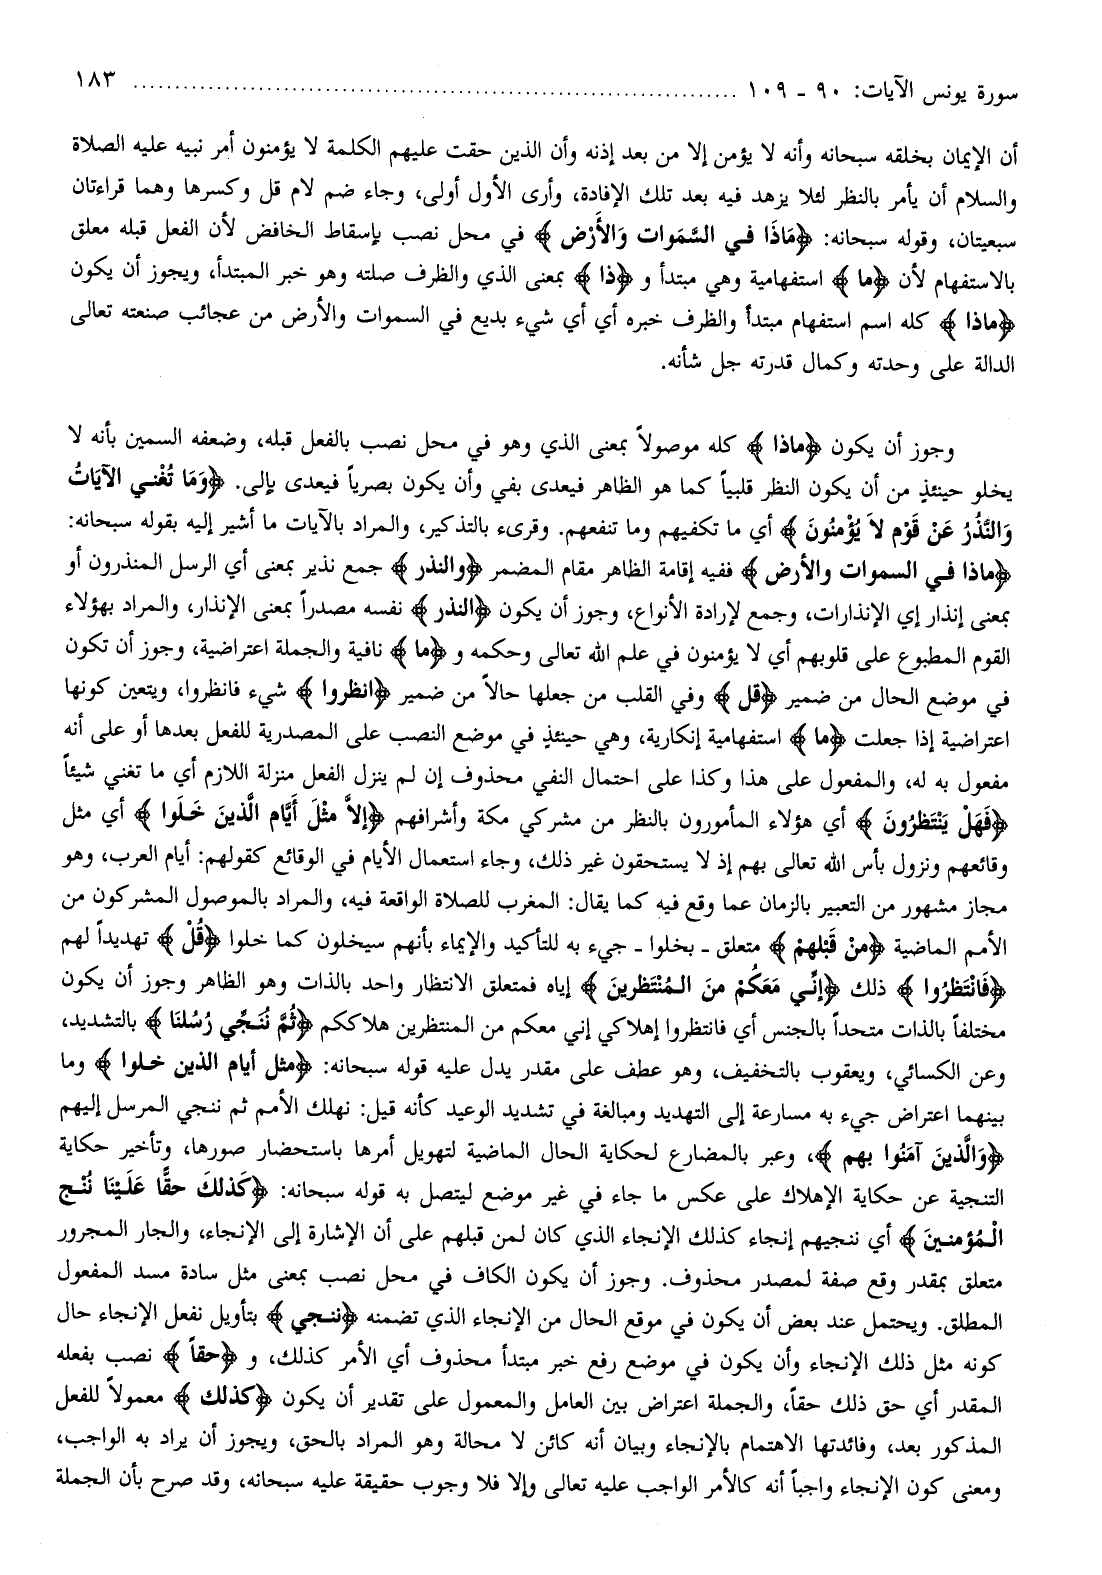 سورة يونس الآيات: ٩٠ - ١٠٩ ........................................................................ ١٨٣
أن الإيمان بخلقه سبحانه وأنه لا يؤمن إلا من بعد إذنه وأن الذين حقت عليهم الكلمة لا يؤمنون أمر نبيه عليه الصلاة
والسلام أن يأمر بالنظر لئلا يزهد فيه بعد تلك الإفادة، وأرى الأول أولى، وجاء ضم لام قل وكسرها وهما قراءتان
سبعيتان، وقوله سبحانه: ﴿مَاذَا فـي السَّمَوات وَالأَرْض﴾ في محل نصب بإسقاط الخافض لأن الفعل قبله معلق
بالاستفهام لأن ﴿ما﴾ استفهامية وهي مبتدأ و ﴿ذا﴾ بمعنى الذي والظرف صلته وهو خبر المبتدأ، ويجوز أن يكون
﴿ماذا﴾ كله اسم استفهام مبتدأ والظرف خبره أي أي شيء بديع في السموات والأرض من عجائب صنعته تعالى
الدالة على وحدته وكمال قدرته جل شأنه.
وجوز أن يكون ﴿ماذا﴾ كله موصولاً بمعنى الذي وهو في محل نصب بالفعل قبله، وضعفه السمين بأنه لا
يخلو حينئذٍ من أن يكون النظر قلبياً كما هو الظاهر فيعدى بفي وأن يكون بصرياً فيعدى بإلى. ﴿وَمَا تُغْنـي الآيَاتُ
وَالنُّذُرُ عَنْ قَوْم لاَ يُؤْمنُونَ﴾ أي ما تكفيهم وما تنفعهم. وقرىء بالتذكير، والمراد بالآيات ما أشير إليه بقوله سبحانه:
﴿ماذا فـي السموات والأرض﴾ ففيه إقامة الظاهر مقام المضمر ﴿والنذر﴾ جمع نذير بمعنى أي الرسل المنذرون أو
بمعنى إنذار إي الإنذارات، وجمع لإرادة الأنواع، وجوز أن يكون ﴿النذر﴾ نفسه مصدراً بمعنى الإنذار، والمراد بهؤلاء
القوم المطبوع على قلوبهم أي لا يؤمنون في علم الله تعالى وحكمه و ﴿ما﴾ نافية والجملة اعتراضية، وجوز أن تكون
في موضع الحال من ضمير ﴿قل﴾ وفي القلب من جعلها حالاً من ضمير ﴿انظروا﴾ شيء فانظروا، ويتعين كونها
اعتراضية إذا جعلت ﴿ما﴾ استفهامية إنكارية، وهي حينئذٍ في موضع النصب على المصدرية للفعل بعدها أو على أنه
مفعول به له، والمفعول على هذا وكذا على احتمال النفي محذوف إن لم ينزل الفعل منزلة اللازم أي ما تغني شيئاً
﴿فَهَلْ يَنْتَظرُونَ﴾ أي هؤلاء المأمورون بالنظر من مشركي مكة وأشرافهم ﴿إلاَّ مثْلَ أَيَّام الَّذينَ خَـلَوا﴾ أي مثل
وقائعهم ونزول بأس الله تعالى بهم إذ لا يستحقون غير ذلك، وجاء استعمال الأيام في الوقائع كقولهم: أيام العرب، وهو
مجاز مشهور من التعبير بالزمان عما وقع فيه كما يقال: المغرب للصلاة الواقعة فيه، والمراد بالموصول المشركون من
الأمم الماضية ﴿منْ قَبْلهمْ﴾ متعلق ـ بخلوا ـ جيء به للتأكيد والإيماء بأنهم سيخلون كما خلوا ﴿قُلْ﴾ تهديداً لهم
﴿فَانْتَظرُوا﴾ ذلك ﴿إنِّـي مَعَكُمْ منَ الـمُنْتَظرينَ﴾ إياه فمتعلق الانتظار واحد بالذات وهو الظاهر وجوز أن يكون
مختلفاً بالذات متحداً بالجنس أي فانتظروا إهلاكي إني معكم من المنتظرين هلاككم ﴿ثُمَّ نُنَـجِّي رُسُلنَا﴾ بالتشديد،
وعن الكسائي، ويعقوب بالتخفيف، وهو عطف على مقدر يدل عليه قوله سبحانه: ﴿مثل أيام الذين خـلوا﴾ وما
بينهما اعتراض جيء به مسارعة إلى التهديد ومبالغة في تشديد الوعيد كأنه قيل: نهلك الأمم ثم ننجي المرسل إليهم
﴿وَالَّذينَ آمَنُوا بهم﴾، وعبر بالمضارع لحكاية الحال الماضية لتهويل أمرها باستحضار صورها، وتأخير حكاية
التنجية عن حكاية الإهلاك على عكس ما جاء في غير موضع ليتصل به قوله سبحانه: ﴿كَذلكَ حقًّا عَلَـيْنَا نُنْـج
الْـمُؤمنـينَ﴾ أي ننجيهم إنجاء كذلك الإنجاء الذي كان لمن قبلهم على أن الإشارة إلى الإنجاء، والجار المجرور
متعلق بمقدر وقع صفة لمصدر محذوف. وجوز أن يكون الكاف في محل نصب بمعنى مثل سادة مسد المفعول
المطلق. ويحتمل عند بعض أن يكون في موقع الحال من الإنجاء الذي تضمنه ﴿ننـجي﴾ بتأويل نفعل الإنجاء حال
كونه مثل ذلك الإنجاء وأن يكون في موضع رفع خبر مبتدأ محذوف أي الأمر كذلك، و ﴿حقاً﴾ نصب بفعله
المقدر أي حق ذلك حقاً، والجملة اعتراض بين العامل والمعمول على تقدير أن يكون ﴿كذلك﴾ معمولاً للفعل
المذكور بعد، وفائدتها الاهتمام بالإنجاء وبيان أنه كائن لا محالة وهو المراد بالحق، ويجوز أن يراد به الواجب،
ومعنى كون الإنجاء واجباً أنه كالأمر الواجب عليه تعالى وإلا فلا وجوب حقيقة عليه سبحانه، وقد صرح بأن الجملة